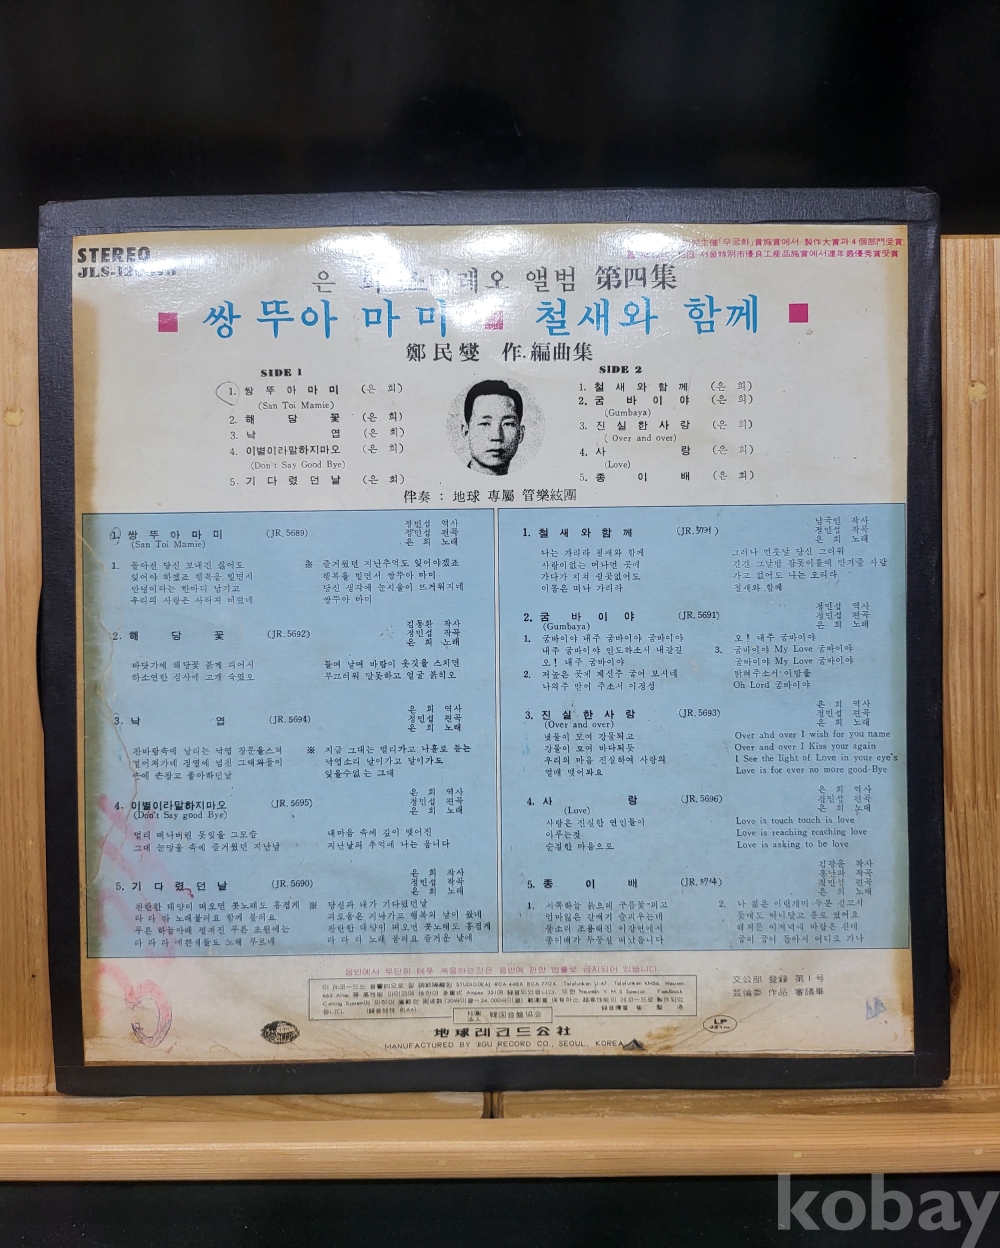 STEREO
은 희 스테레오 앨범 第四集
쌍 뚜아 마 미 철새와 함께
鄭民燮 作.編曲集
SIDE 1
1. 쌍 뚜 아 마 미 (은 희)
(San Toi Mamie)
2. 해 당 꽃 (은 희)
3. 낙 엽 (은 희)
4. 이별이라말하지마오 (은 희)
(Don't Say Good Bye)
5. 기 다 렸 던 날 (은 희)
SIDE 2
1. 철 새 와 함 께 (은 희)
2. 굼 바 이 야 (은 희)
(Gumbaya)
3. 진 실 한 사 랑 (은 희)
( Over and over)
4. 사 랑 (은 희)
(Love)
5. 종 이 배 (은 희)
伴奏 : 地球 專屬 管樂絃團
1. 쌍 뚜 아 마 미 (JR. 5689)
(San Toi Mamie)
정민섭 역사
정민섭 편곡
은 희 노래
1. 돌아선 당신 보내긴 싫어도
잊어야 하겠죠 행복을 빌면서
안녕이라는 한마디 남기고
우리의 사랑은 사라져 버렸네
※ 즐거웠던 지난추억도 잊어야겠죠
행복을 빌면서 쌍뚜아 마미
당신 생각에 눈시울이 뜨거워지네
쌍뚜아 마미
2. 해 당 꽃 (JR. 5692)
김동환 작사
정민섭 작곡
은 희 노래
바닷가에 해당꽃 붉게 피어서
하소연한 심사에 고개 숙였오
들며 날며 바람이 옷깃을 스치면
부끄러워 말못하고 얼굴 붉히오
3. 낙 엽 (JR. 5694)
은 희 역사
정민섭 편곡
은 희 노래
찬바람속에 날리는 낙엽 창문을스쳐
멀어져가네 정열에 넘친 그대와둘이
손에 손잡고 좋아하던날
※ 지금 그대는 멀리가고 나홀로 듣는
낙엽소리 날이가고 달이가도
잊을수없는 그대
4. 이별이라말하지마오 (JR. 5695)
(Don't Say good Bye)
은 희 역사
정민섭 편곡
은 희 노래
멀리 떠나버린 못잊을 그모습
그대 눈망울 속에 즐거웠던 지난날
내마음 속에 깊이 맺어진
지난날의 추억에 나는 웁니다
5. 기 다 렸 던 날 (JR. 5690)
은 희 작사
정민섭 작곡
은 희 노래
찬란한 태양이 떠오면 꽃노래도 흥겹게
라 라 라 노래불러요 함께 불러요
푸른 하늘아래 펼쳐진 푸른 초원에는
라 라 라 예쁜새들도 노래 부르네
※ 당신과 내가 기다렸던날
괴로움은 지나가고 행복의 날이 왔네
찬란한 태양인 떠오면 꽃노래도 흥겹게
라 라 라 노래 불러요 즐거운 날에
1. 철 새 와 함 께
남국인 작사
정민섭 작곡
은 희 노래
나는 가리라 철새와 함께
사랑이없는 머나먼 곳에
가다가 지쳐 쉴곳없어도
이몸은 떠나 가리라
그러나 먼훗날 당신 그리워
가고 없어도 나는 오리라
철새와 함께
2. 굼 바 이 야 (JR. 5691)
(Gumbaya)
정민섭 역사
정민섭 편곡
은 희 노래
1. 굼바이야 내주 굼바이야 굼바이야
내주 굼바이야 인도하소서 내갈길
오! 내주 굼바이야
2. 저높은 곳에 계신주 굽어 보시네
나의주 받어 주소서 이정성
오! 내주 굼바이야
3. 굼바이야 My Love 굼바이야
굼바이야 My Love 굼바이야
밝혀주소서 이밤을
Oh Lord 굼바이야
3. 진 실 한 사 랑 (JR. 5693)
(Over and over)
은 희 역사
정민섭 편곡
은 희 노래
냇물이 모여 강물되고
강물이 모여 바다되듯
우리의 마음 진실하여 사랑의
열매 맺어봐요
Over and over I wish for you name
Over and over I Kiss your again
I See the light of Love in your eye's
Love is for ever no more good-Bye
4. 사 랑 (JR. 5696)
(Love)
은 희 역사
정민섭 편곡
은 희 노래
사랑은 진실한 연인들이
아루는것
순결한 마음으로
Love is touch touch is love
Love is reaching reaching love
Love is asking to be love
5. 종 이 배
김광윤 작사
홍난파 작곡
정민섭 편곡
은 희 노래
1. 서쪽하늘 붉으레 구름꽃 피고
엄마잃은 갈매기 슬피우는데
물소리 조용해진 이강변에서
종이배가 두둥실 떠났읍니다
음반에서 무단히 테푸 복음하는것은 음반에 관한 법률로 금지되어 있읍니다.
社團法人 韓国音盤協会
文公部 登録 第1号
芸倫委 作品 審議畢
地球레코드公社
LP
MANUFACTURED BY JIGU RECORD CO., SEOUL, KOREA
kobay